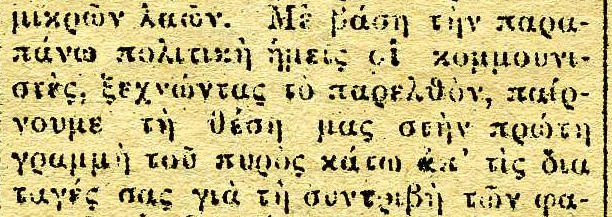 μικρῶν λαῶν. Μὲ βάση τὴν παρα-
πάνω πολιτικὴ ἡμεῖς οἱ κομμουνι-
στές, ξεχνώντας τὸ παρελθὸν, παίρ-
νουμε τὴ θέση μας στὴν πρώτη
γραμμὴ τοῦ πυρὸς κάτω ἀπ' τὶς δια
ταγές σας γιὰ τὴ συντριβὴ τῶν φα-